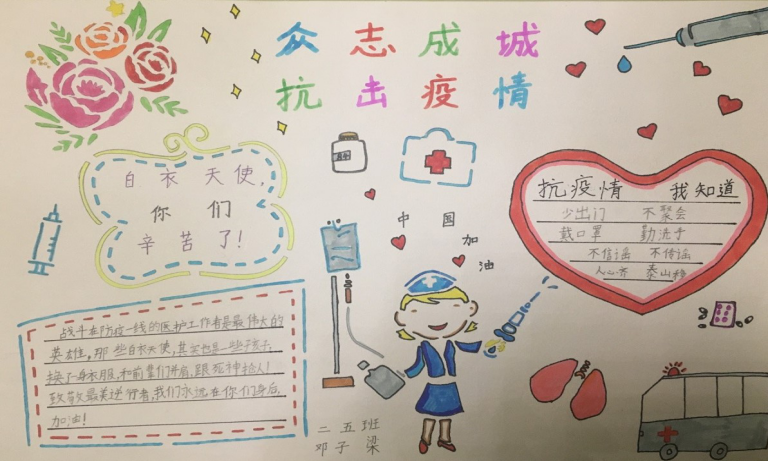 众志成城
抗击疫情
白衣天使,
你们
辛苦了!
中国
加油
抗疫情 我知道
少出门 不聚会
戴口罩 勤洗手
不信谣 不传谣
人心齐 泰山移
战斗在防疫一线的医护工作者是最伟大的
英雄。那些白衣天使,其实也是一些孩子,
换了一身衣服,和前辈们并肩,跟死神抢人!
致敬最美逆行者,我们永远在你们身后,
加油!
二五班
邓子梁